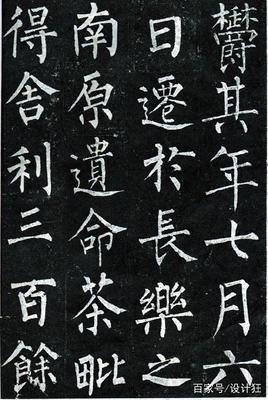 欝其年七月六
日遷於長樂之
南原遺命茶毗
得舍利三百餘
百家号/设计狂